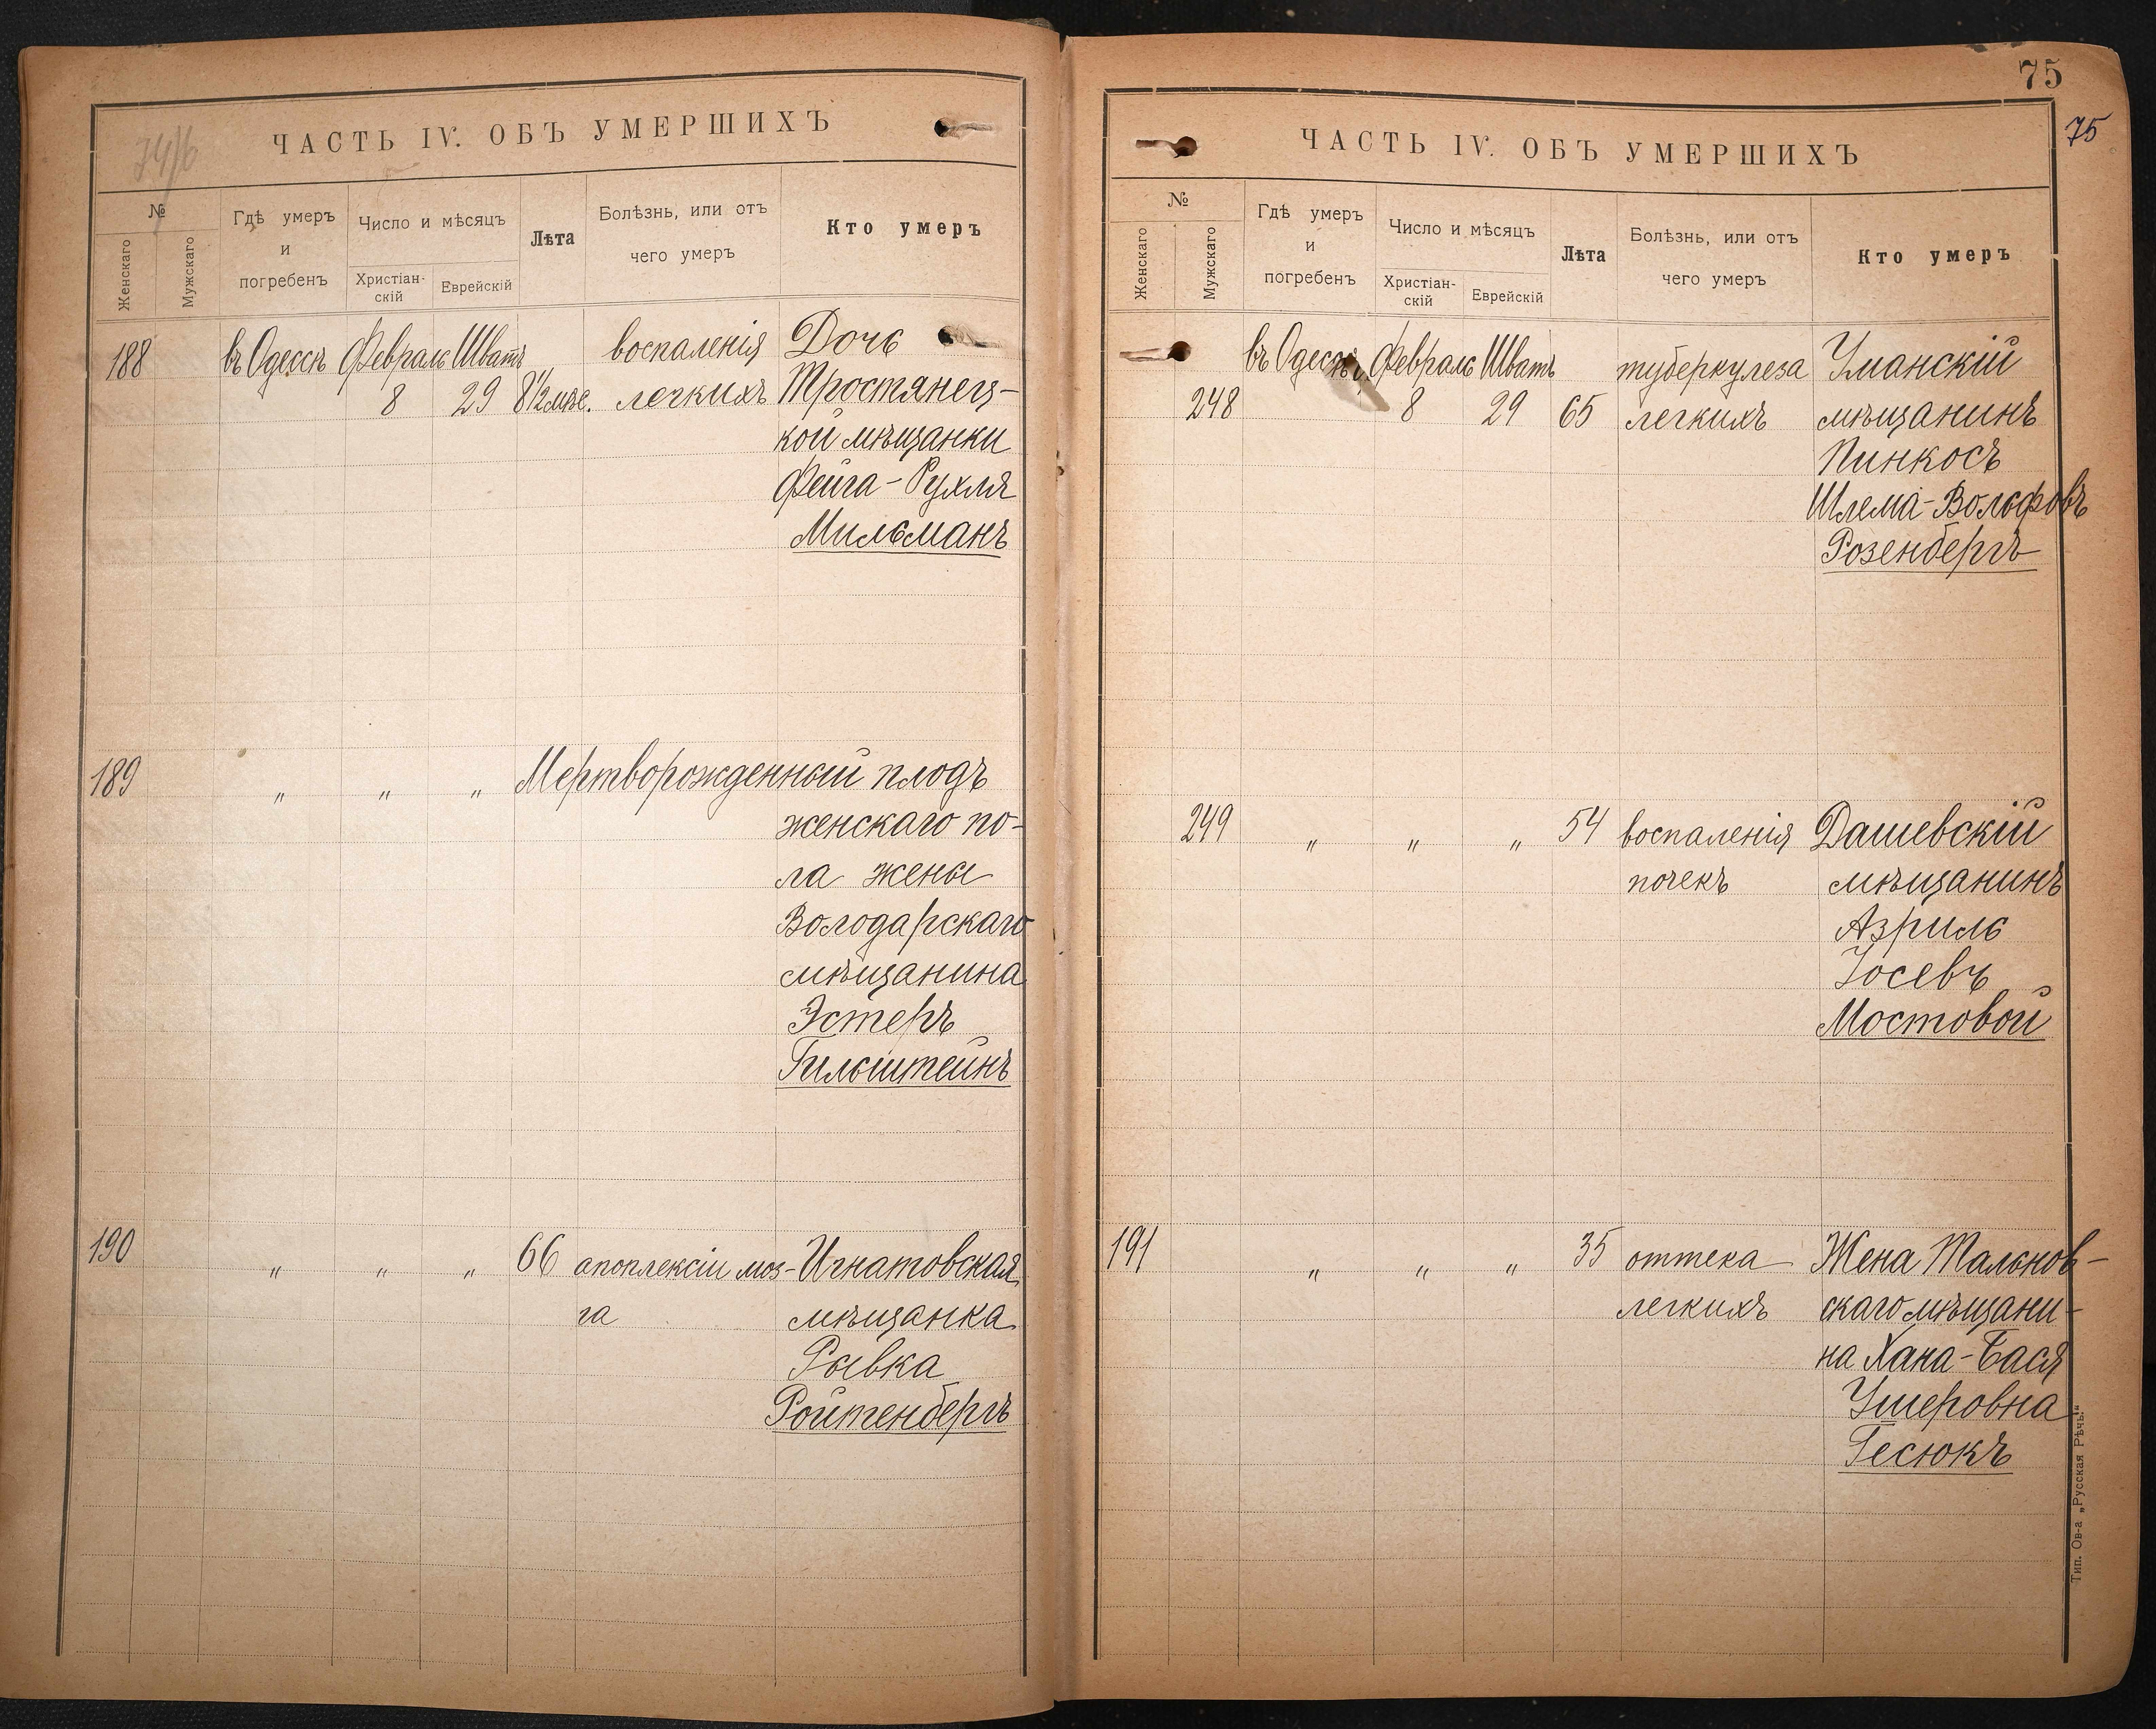 74/б
ЧАСТЬ IV. ОБЪ УМЕРШИХЪ
№
Женскаго
Мужскаго
Гдѣ умеръ
и
погребенъ
Число и мѣсяцъ
Христіан-
скій
Еврейскій
Лѣта
Болѣзнь, или отъ
чего умеръ
Кто умеръ
188 въ Одессѣ Февраль Шватъ воспаленія Дочь
8 29 8½ мѣс. легкихъ Тростянец-
кой мѣщанки
Фейга-Рухля
Мильманъ
189 " " " Мертворожденный плодъ
женскаго по-
ла жены
Володарскаго
мѣщанина
Эстеръ
Гильштейнъ
190 " " " 66 апоплексіи моз- Игнатовская
га мѣщанка
Рывка
Ройтенбергъ
75
75
ЧАСТЬ IV. ОБЪ УМЕРШИХЪ
№
Женскаго
Мужскаго
Гдѣ умеръ
и
погребенъ
Число и мѣсяцъ
Христіан-
скій
Еврейскій
Лѣта
Болѣзнь, или отъ
чего умеръ
Кто умеръ
въ Одессѣ Февраль Шватъ туберкулеза Уманскій
248 8 29 65 легкихъ мѣщанинъ
Пинкосъ
Шлема-Вольфовъ
Розенбергъ
249 " " " 54 воспаленія Дашевскій
почекъ мѣщанинъ
Азриль
Іосевъ
Мостовой
191 " " " 35 оттека Жена Тальнов-
легкихъ скаго мѣщани-
на Хана-Бася
Ушеровна
Гесюкъ
Тип. Ов-а „Русская Рѣчь“